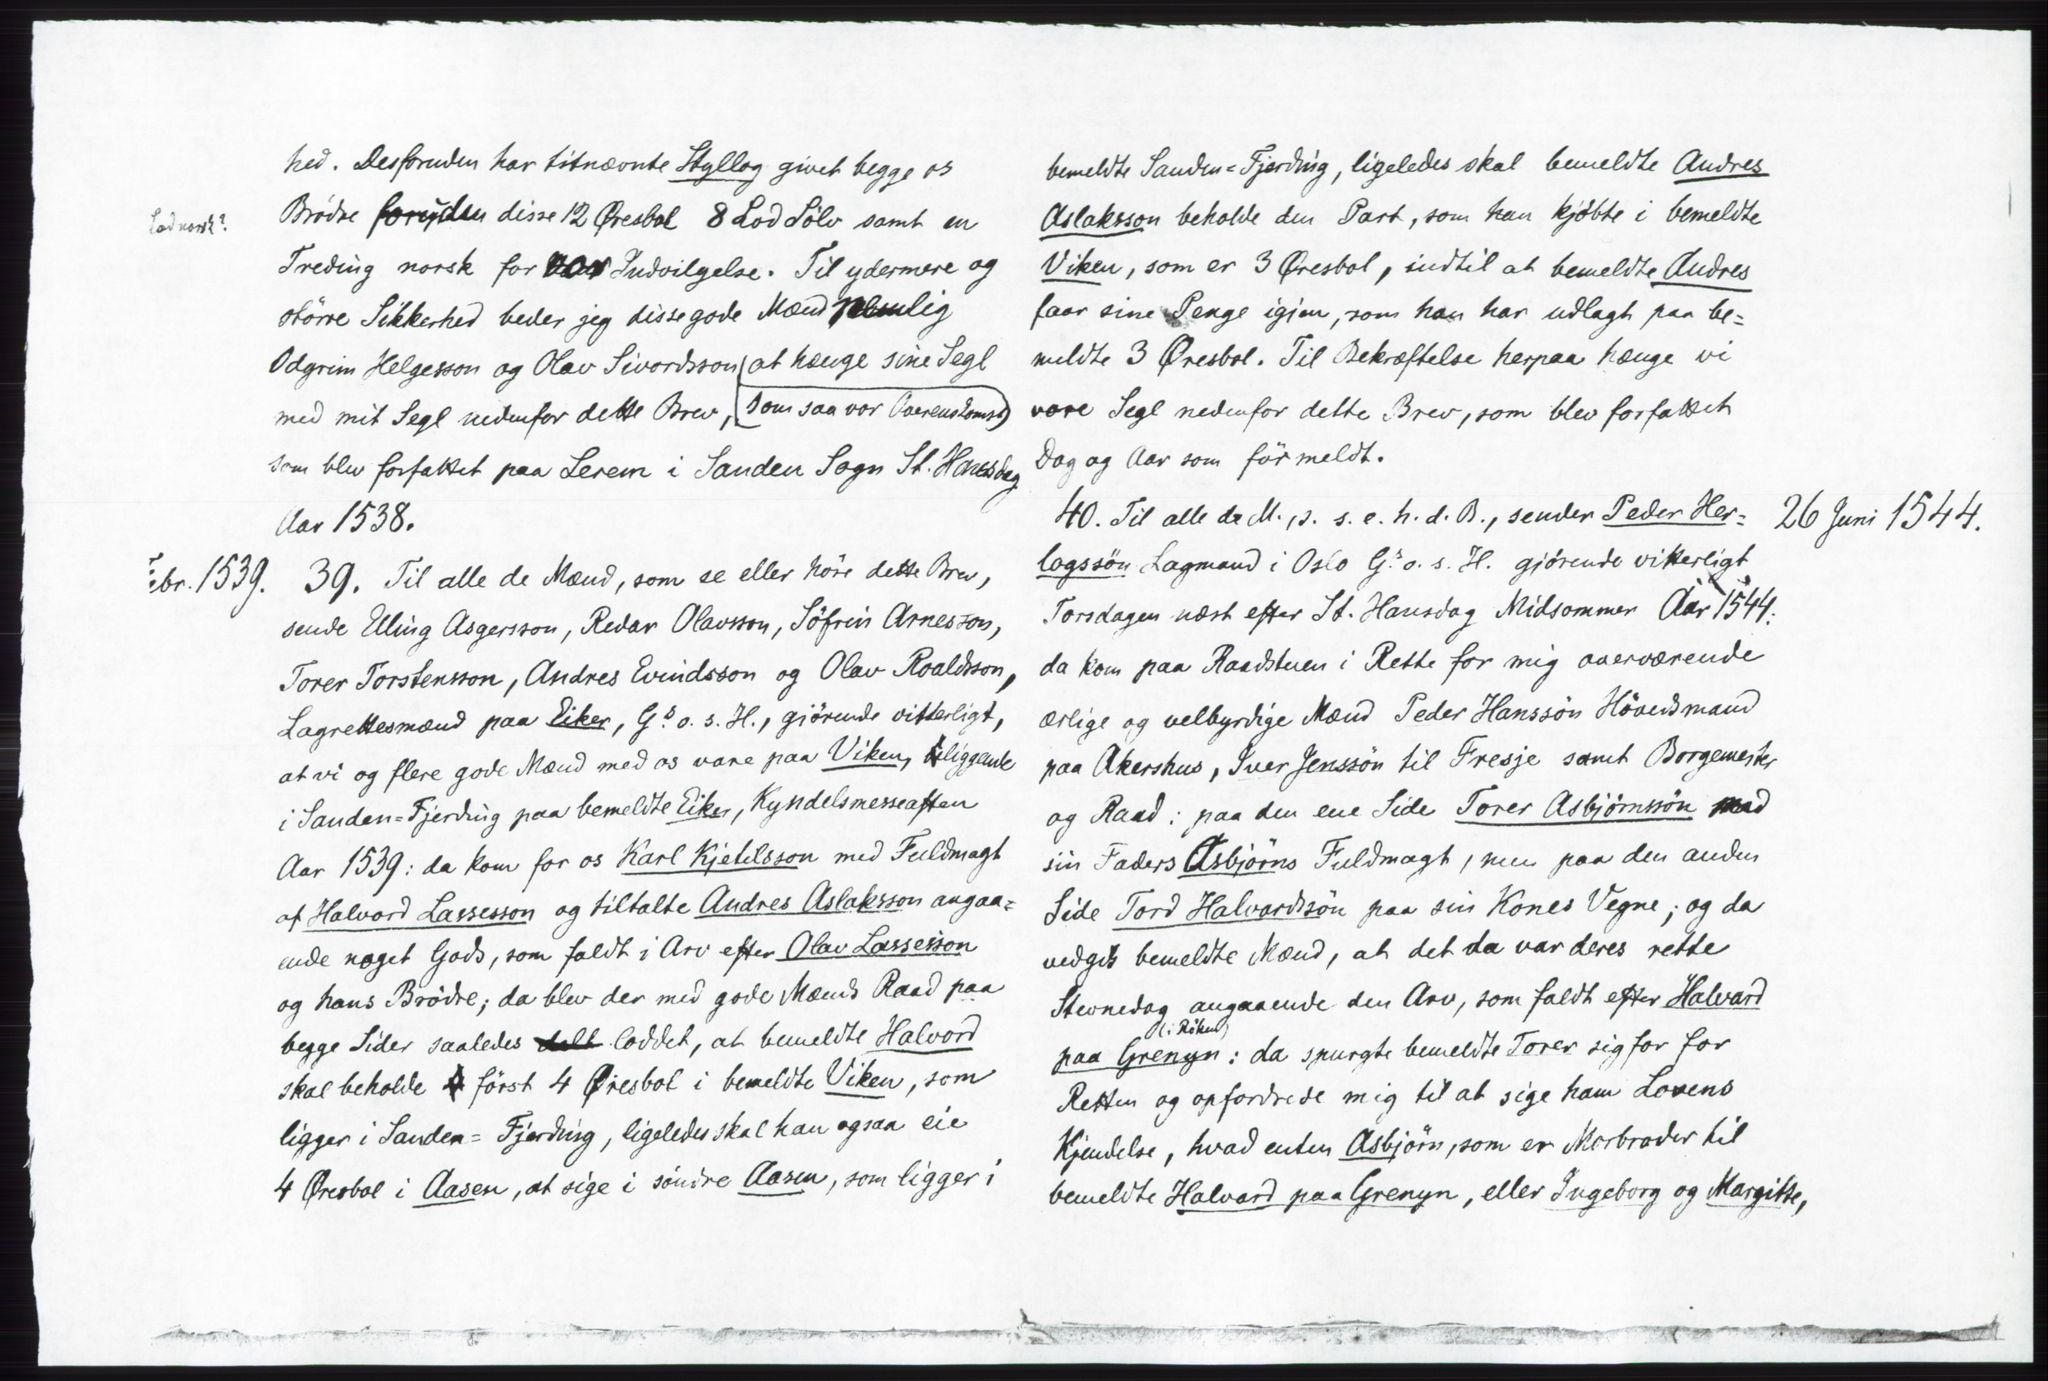 hed. Desforuden har titnævnte Styllog givet begge os
Lod norsk?
Brödre foruden disse 12 Øresbol 8 Lod Sölv samt en
Treding norsk for vor Indvilgelse. Til ydermere og
större Sikkerhed beder jeg disse gode Mænd nemlig
Odgrim Helgesson og Olav Sivordsson (at hænge sine Segl
med mit Segl nedenfor dette Brev, som saa vor Overenskomst)
som blev forfattet paa Lerem i Sanden Sogn St. Hansdag
Aar 1538.
Febr. 1539.
39. Til alle de Mænd, som se eller höre dette Brev,
sende Elling Asgersson, Redar Olavsson, Söfrin Arnesson,
Torer Torstensson, Andres Evindsson og Olav Roaldsson,
Lagrettesmænd paa Eiker, Gs o. s. H., gjörende vitterligt,
at vi og flere gode Mænd med os vare paa Viken, liggende
i Sanden=Fjerding paa bemeldte Eiker, Kyndelsmesseaften
Aar 1539: da kom for os Karl Kjetilsson med Fuldmagt
af Halvord Lassesson og tiltalte Andres Aslaksson angaa=
ende noget Gods, som faldt i Arv efter Olav Lassesson
og hans Brödre; da blev der med gode Mænds Raad paa
begge Sider saaledes delt loddet, at bemeldte Halvord
skal beholde först 4 Øresbol i bemeldte Viken, som
ligger i Sanden=Fjerding, ligeledes skal han ogsaa eie
4 Øresbol i Aasen, at sige i söndre Aasen, som ligger i
bemeldte Sanden=Fjerding, ligeledes skal bemeldte Andres
Aslaksson beholde den Part, som han kjöbte i bemeldte
Viken, som er 3 Øresbol, indtil at bemeldte Andres
faar sine Penge igjen, som han har udlagt paa be=
meldte 3 Øresbol. Til Bekræftelse herpaa hænge vi
vore Segl nedenfor dette Brev, som blev forfattet
Dag og Aar som för meldt.
26 Juni 1544.
40. Til alle de M., s. s. e. h. d. B., sender Peder Her=
logssön Lagmand i Oslo Gs o. s. H. gjörende vitterligt
Torsdagen næst efter St. Hansdag Midsommer Aar 1544:
da kom paa Raadstuen i Rette for mig overværende
ærlige og velbyrdige Mænd Peder Hanssön Hövedsmand
paa Akershus, Iver Jenssön til Fresje samt Borgemester
og Raad: paa den ene Side Torer Asbjörnssön med
sin Faders Asbjörns Fuldmagt, men paa den anden
Side Tord Halvordssön paa sin Kones Vegne; og da
vedgik bemeldte Mænd, at det da var deres rette
Stevnedag angaaende den Arv, som faldt efter Halvard
(i Röken)
paa Grenyn: da spurgte bemeldte Torer sig for for
Retten og opfordrede mig til at sige ham Lovens
Kjendelse, hvad enten Asbjörn, som er Morbroder til
bemeldte Halvard paa Grenyn, eller Ingeborg og Margitte,